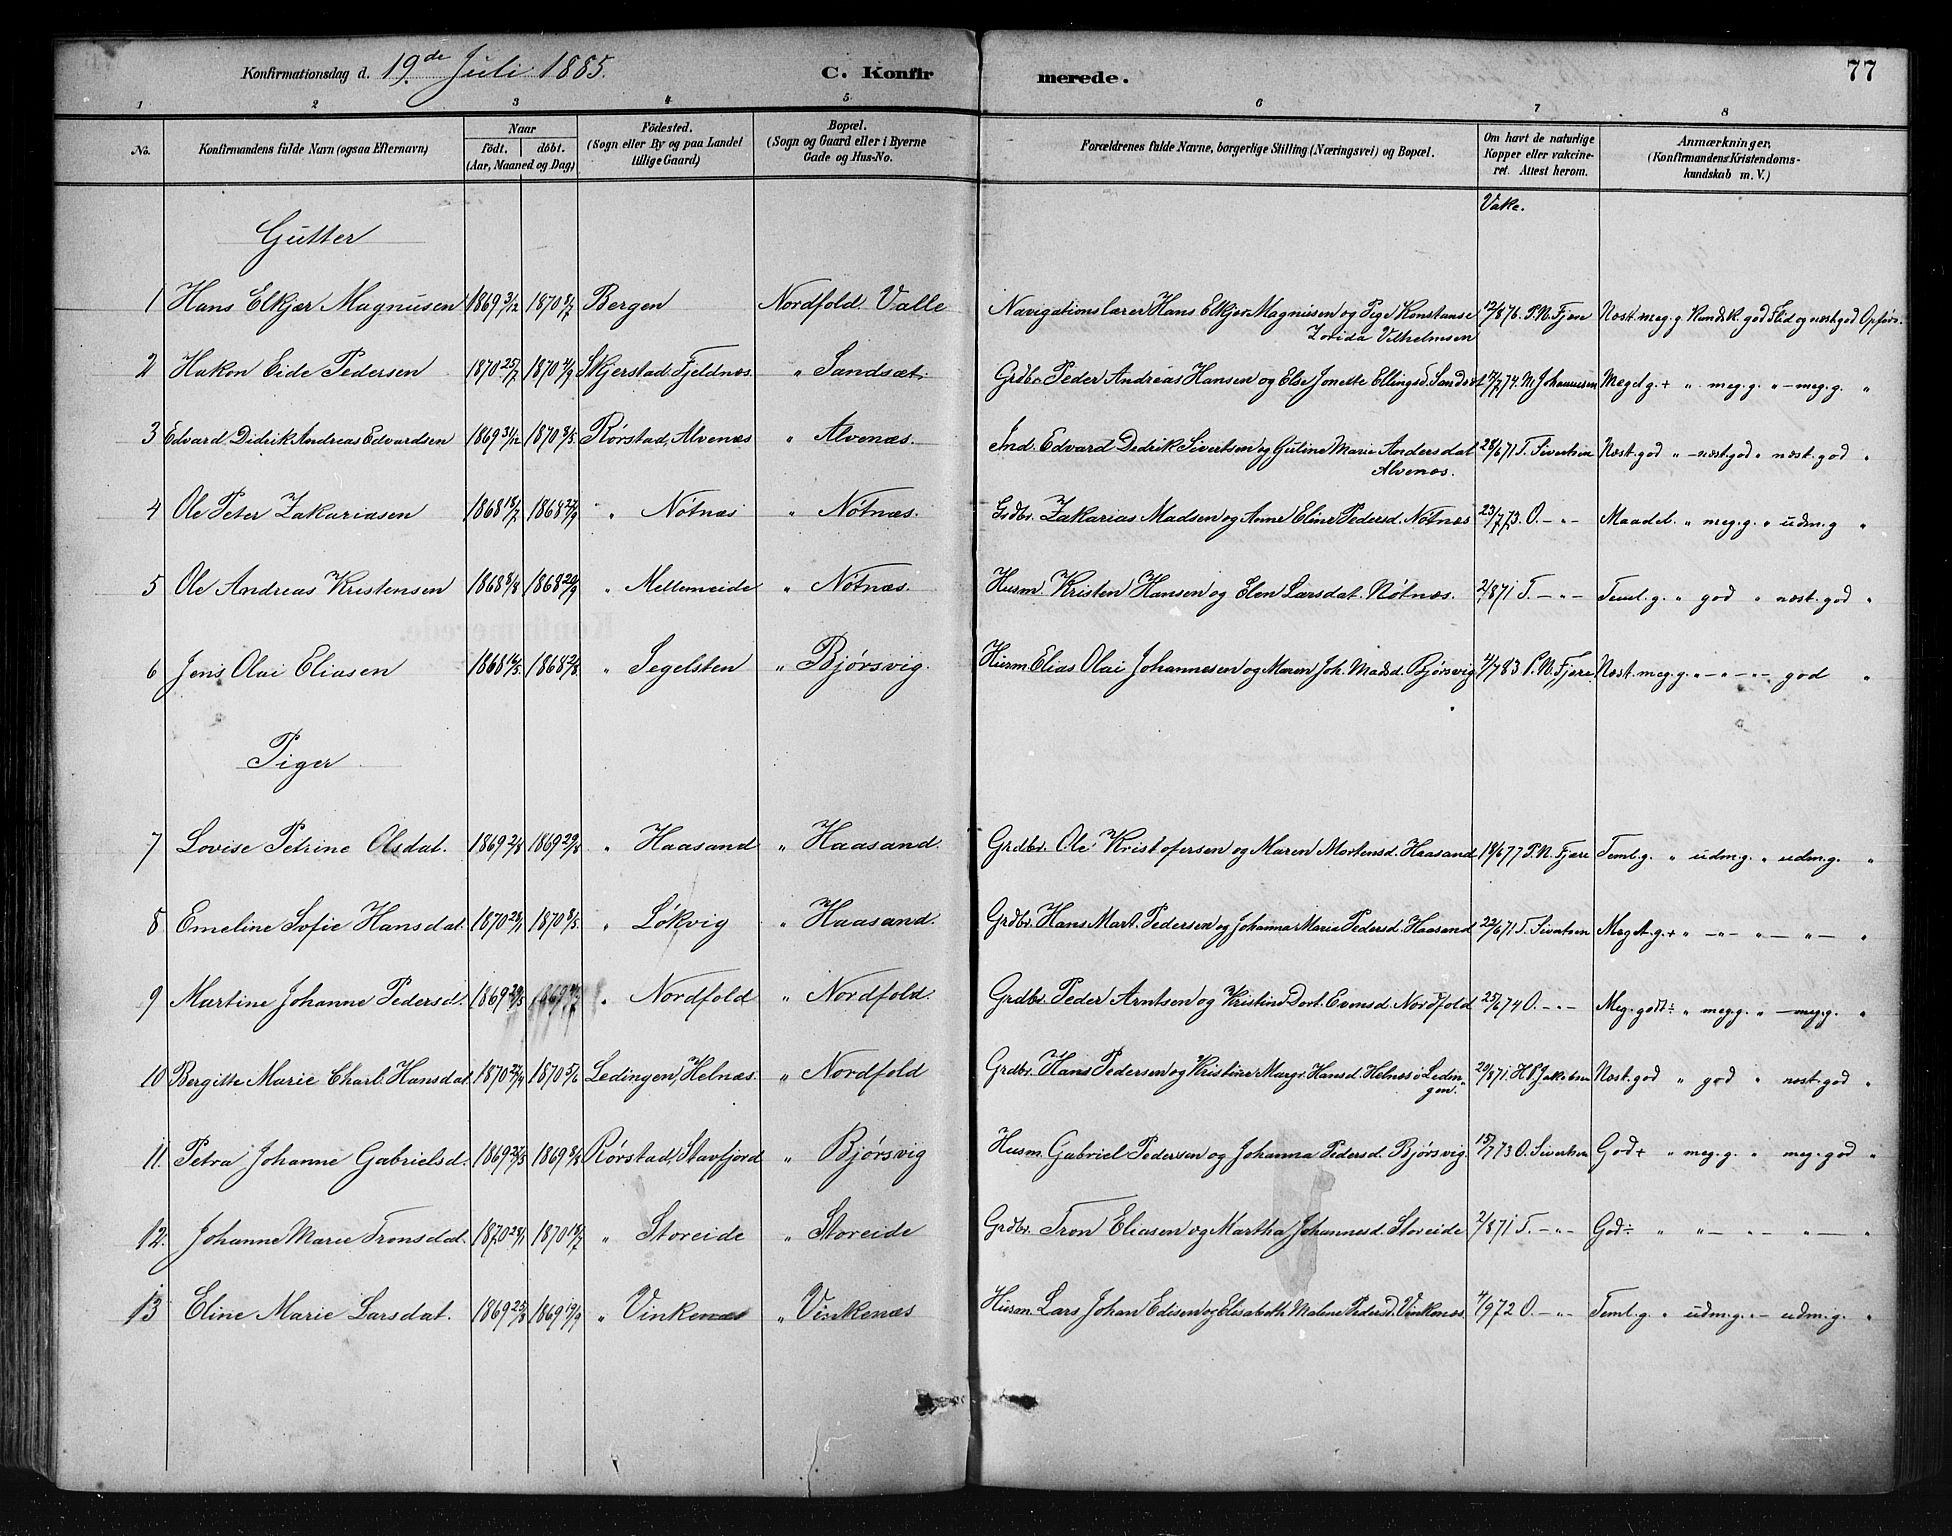 Konfirmationsdag d. 19de Juli 1885.
C. Konfirmerede.
77
1 2 3 4 5 6 7 8
No.
Konfirmandens fulde Navn (ogsaa Efternavn)
Naar
födt. döbt.
(Aar, Maaned og Dag)
Födested.
(Sogn eller By og paa Landet
tillige Gaard)
Bopæl.
(Sogn og Gaard eller i Byerne
Gade og Hus-No.
Forældrenes fulde Navne, borgerlige Stilling (Næringsvei) og Bopæl.
Om havt de naturlige
Kopper eller vakcine-
ret. Attest herom.
Anmærkninger,
(Konfirmandens Kristendoms-
kundskab m. V.)
Vake.
Gutter
1 Hans Elkjær Magnusen 1869 3/12 1870 8/7 Bergen Nordfold Valle Navigationslærer Hans Elkjær Magnusen og Pige Konstanse 12/8 76. P.N. Fjære Næst. meg. g. Kundsk. god Flid og næst. god Opførs.
Zorida Vilhelmsen
2 Hakon Eide Pedersen 1870 25/7 1870 4/9 Skjerstad, Fjeldnæs " Sandsæt. Grdbr. Peder Andreas Hansen og Else Jonette Ellingsd. Sandsæt 17/7 74. N Johannesen Meget g. + " meg. g. " - meg. g. "
3 Edvard Didrik Andreas Edvardsen 1869 31/12 1870 8/5 Rørstad, Alvenæs " Alvenæs. Ind. Edvard Dedrik Sivertsen og Gutine Marie Andersdat 28/6 71 T. Sivertsen Næst. god " - næst. god " næst. god "
Alvenæs.
4 Ole Peter Zakariasen 1868 18/7 1868 27/9 " Nötnæs " Nötnæs. Grdbr. Zakarias Madsen og Anne Eline Pedersd. Nötnæs 23/7 73. O. - " - Maadel. " meg. g. " udm. g "
5 Ole Andreas Kristensen 1868 8/8 1868 20/9 " Mellemeide " Nötnæs. Husm Kristen Hansen og Elen Larsdat. Nötnæs. 2/8 71 T. - " - Teml. g. " god " næst. god "
6 Jens Olai Eliasen 1868 16/5 1868 2/8 " Segelsten " Bjørsvig. Husm. Elias Olai Johannesen og Maren Joh. Madsd. Bjørsvig 4/7 83 P. N. Fjære. Næst. meg. g. " - " - " - god "
Piger
7 Lovise Petrine Olsdat. 1869 2/8 1869 29/8 " Haasand " Haasand. Grdbr. Ole Kristofersen og Maren Mortensd. Haasand 18/6 77 P. N. Fjære Teml. g. " udm. g. " udm. g. "
8 Emeline Sofie Hansdat. 1870 28/1 1870 8/5 " Løkvig " Haasand. Grdbr. Hans Mart. Pedersen og Johanna Maria Pedersd. Haasand 22/6 71 T. Sivertsen Meget. g. + " - " - " - " - "
9 Martine Johanne Pedersd. 1869 " Nordfold " Nordfold. Grdbr. Peder Arntsen og Kristine Dort. Evensd. Nordfold 25/6 74 O. - " - Meg. god ÷ " meg. g. " - meg. g. "
10 Bergitte Marie Charl. Hansdat. 1870 27/4 1870 5/6 Ledingen, Helnæs. " Nordfold Grdbr. Hans Pedersen og Kristine Margr. Hansd. Helnæs i Ledin- 20/8 71. H P Jakobsen Næst. god " god " næst. god "
gen.
11. Petra Johanne Gabrielsd. 1869 27/3 1869 8/8 Rörstad, Stavfjord " Bjørsvig Husm. Gabriel Pedersen og Johanna Pedersd. Bjørsvig. 15/7 73 O. Sivertsen God + " meg. g. " meg. god "
12. Johanne Marie Tronsdat. 1870 28/1 1870 18/7 " Storeide " Storeide Grdbr. Tron Eliasen og Martha Johannesd. Storeide 2/8 71 T. - " - God ÷ " " - " - " - "
13 Eline Marie Larsdat. 1869 25/8 1869 19/9 " Vinkenæs " Vinkenæs Husm. Lars Johan Edisen og Elisabeth Malene Pedersd. Vinkenæs. 4/9 72 O. - " - Teml. g. " udm. g. " - udm. g. "